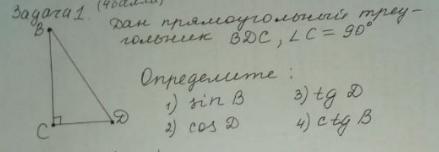 Задача 1. (4 балла)
Дан прямоугольный треу-
гольник BDC, ∠C = 90°
B
Определите:
1) sin B 3) tg D
C D
2) cos D 4) ctg B